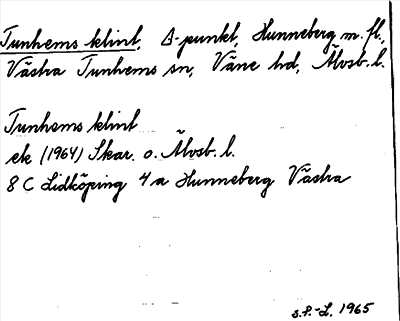 Tunhems klint, Δ-punkt, Hunneberg m. fl.,
Västra Tunhems sn, Väne hd, Älvsb. l.
Tunhems klint
ek (1964) Skar. o. Älvsb. l.
8 C Lidköping 4 a Hunneberg Västra
S.P.-L. 1965